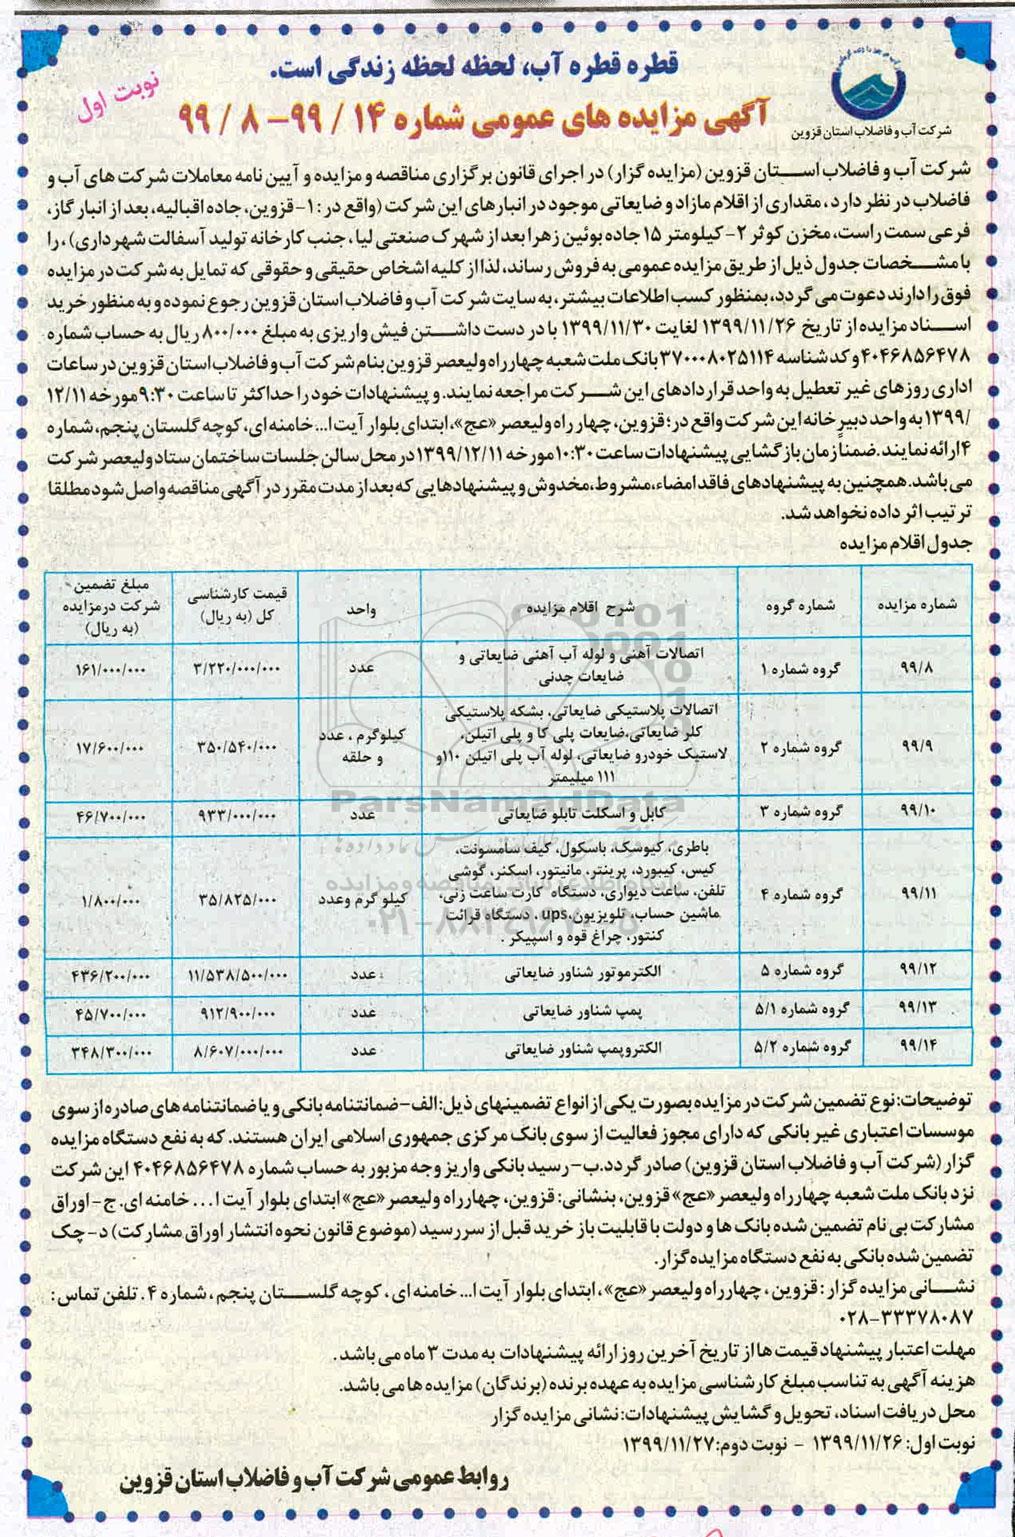 قطره قطره آب، لحظه لحظه زندگی است.
نوبت اول
آگهی مزایده های عمومی شماره ۱۴ / ۹۹- ۸ / ۹۹
شرکت آب و فاضلاب استان قزوین
شرکت آب و فاضلاب استان قزوین (مزایده گزار) در اجرای قانون برگزاری مناقصه و مزایده و آیین نامه معاملات شرکت های آب و
فاضلاب در نظر دارد ، مقداری از اقلام مازاد و ضایعاتی موجود در انبارهای این شرکت (واقع در : ۱- قزوین، جاده اقبالیه، بعد از انبار گاز،
فرعی سمت راست، مخزن کوثر ۲- کیلومتر ۱۵ جاده بوئین زهرا بعد از شهرک صنعتی لیا ، جنب کارخانه تولید آسفالت شهرداری) ، را
با مشخصات جدول ذیل از طریق مزایده عمومی به فروش رساند، لذا از کلیه اشخاص حقیقی و حقوقی که تمایل به شرکت در مزایده
فوق را دارند دعوت می گردد، بمنظور کسب اطلاعات بیشتر، به سایت شرکت آب و فاضلاب استان قزوین رجوع نموده و به منظور خرید
اسناد مزایده از تاریخ ۱۳۹۹/۱۱/۲۶ لغایت ۱۳۹۹/۱۱/۳۰ با در دست داشتن فیش واریزی به مبلغ ۸۰۰/۰۰۰ ریال به حساب شماره
۴۰۴۶۸۵۶۴۷۸ و کد شناسه ۳۷۰۰۰۸۰۲۵۱۱۴ بانک ملت شعبه چهارراه ولیعصر قزوین بنام شرکت آب و فاضلاب استان قزوین در ساعات
اداری روزهای غیر تعطیل به واحد قراردادهای این شرکت مراجعه نمایند. و پیشنهادات خود را حداکثر تا ساعت ۹:۳۰ مورخه ۱۲/۱۱
/۱۳۹۹ به واحد دبیرخانه این شرکت واقع در؛ قزوین، چهارراه ولیعصر «عج»، ابتدای بلوار آیت ا... خامنه ای، کوچه گلستان پنجم، شماره
۴ ارائه نمایند. ضمنا زمان بازگشایی پیشنهادات ساعت ۱۰:۳۰ مورخه ۱۳۹۹/۱۲/۱۱ در محل سالن جلسات ساختمان ستاد ولیعصر شرکت
می باشد. همچنین به پیشنهادهای فاقد امضاء، مشروط، مخدوش و پیشنهادهایی که بعد از مدت مقرر در آگهی مناقصه واصل شود مطلقا
ترتیب اثر داده نخواهد شد.
جدول اقلام مزایده
شماره مزایده | شماره گروه | شرح اقلام مزایده | واحد | قیمت کارشناسی کل (به ریال) | مبلغ تضمین شرکت درمزایده (به ریال)
۹۹/۸ | گروه شماره ۱ | اتصالات آهنی و لوله آب آهنی ضایعاتی و ضایعات چدنی | عدد | ۳/۲۲۰/۰۰۰/۰۰۰ | ۱۶۱/۰۰۰/۰۰۰
۹۹/۹ | گروه شماره ۲ | اتصالات پلاستیکی ضایعاتی، بشکه پلاستیکی کلر ضایعاتی،ضایعات پلی کا و پلی اتیلن، لاستیک خودرو ضایعاتی، لوله آب پلی اتیلن ۱۱۰و ۱۱۱ میلیمتر | کیلوگرم ، عدد و حلقه | ۳۵۰/۵۴۰/۰۰۰ | ۱۷/۶۰۰/۰۰۰
۹۹/۱۰ | گروه شماره ۳ | کابل و اسکلت تابلو ضایعاتی | عدد | ۹۳۳/۰۰۰/۰۰۰ | ۴۶/۷۰۰/۰۰۰
۹۹/۱۱ | گروه شماره ۴ | باطری، کیوسک، باسکول، کیف سامسونت، کیس، کیبورد، پرینتر، مانیتور، اسکنر، گوشی تلفن، ساعت دیواری، دستگاه کارت ساعت زنی، ماشین حساب، تلویزیون،ups ، دستگاه قرائت کنتور، چراغ قوه و اسپیکر . | کیلو گرم وعدد | ۳۵/۸۲۵/۰۰۰ | ۱/۸۰۰/۰۰۰
۹۹/۱۲ | گروه شماره ۵ | الکترموتور شناور ضایعاتی | عدد | ۱۱/۵۳۸/۵۰۰/۰۰۰ | ۴۳۶/۲۰۰/۰۰۰
۹۹/۱۳ | گروه شماره ۵/۱ | پمپ شناور ضایعاتی | عدد | ۹۱۲/۹۰۰/۰۰۰ | ۴۵/۷۰۰/۰۰۰
۹۹/۱۴ | گروه شماره ۵/۲ | الکتروپمپ شناور ضایعاتی | عدد | ۸/۶۰۷/۰۰۰/۰۰۰ | ۳۴۸/۳۰۰/۰۰۰
ParsNamadData
توضیحات: نوع تضمین شرکت در مزایده بصورت یکی از انواع تضمینهای ذیل: الف- ضمانتنامه بانکی و یا ضمانتنامه های صادره از سوی
موسسات اعتباری غیر بانکی که دارای مجوز فعالیت از سوی بانک مرکزی جمهوری اسلامی ایران هستند. که به نفع دستگاه مزایده
گزار (شرکت آب و فاضلاب استان قزوین) صادر گردد. ب- رسید بانکی واریز وجه مزبور به حساب شماره ۴۰۴۶۸۵۶۴۷۸ این شرکت
نزد بانک ملت شعبه چهارراه ولیعصر «عج» قزوین، بنشانی: قزوین، چهارراه ولیعصر «عج» ابتدای بلوار آیت ا... خامنه ای. ج- اوراق
مشارکت بی نام تضمین شده بانک ها و دولت با قابلیت باز خرید قبل از سررسید (موضوع قانون نحوه انتشار اوراق مشارکت) د- چک
تضمین شده بانکی به نفع دستگاه مزایده گزار.
نشانی مزایده گزار : قزوین ، چهارراه ولیعصر «عج» ، ابتدای بلوار آیت ا... خامنه ای ، کوچه گلستان پنجم ، شماره ۴ . تلفن تماس :
۰۲۸-۳۳۳۷۸۰۸۷
مهلت اعتبار پیشنهاد قیمت ها از تاریخ آخرین روز ارائه پیشنهادات به مدت ۳ ماه می باشد .
هزینه آگهی به تناسب مبلغ کارشناسی مزایده به عهده برنده (برندگان) مزایده ها می باشد.
محل دریافت اسناد، تحویل و گشایش پیشنهادات: نشانی مزایده گزار
نوبت اول: ۱۳۹۹/۱۱/۲۶ - نوبت دوم: ۱۳۹۹/۱۱/۲۷
روابط عمومی شرکت آب و فاضلاب استان قزوین